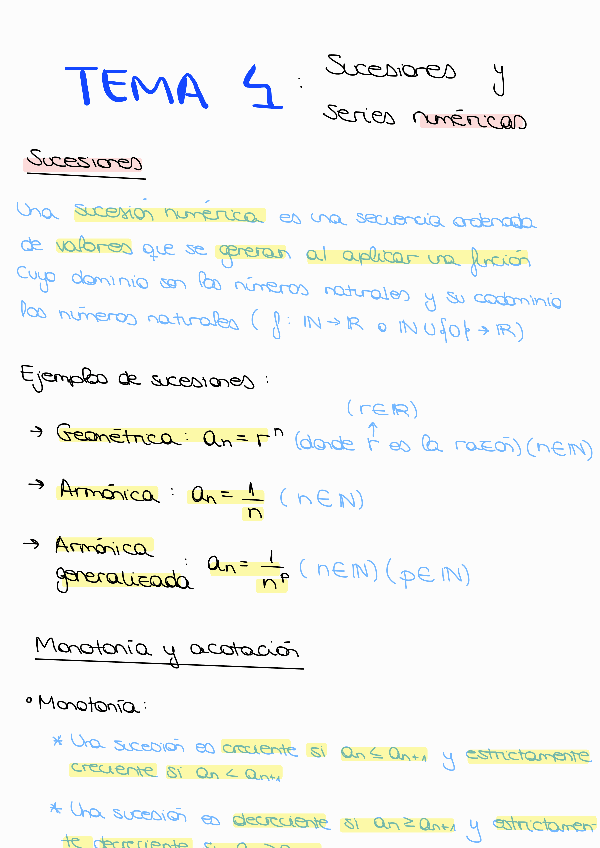 TEMA 4 : Sucesiones y
series numéricas
Sucesiones
Una sucesión numérica es una secuencia ordenada
de valores que se generan al aplicar una función
cuyo dominio son los números naturales y su codominio
los números naturales ( f : ℕ → ℝ o ℕ∪{0} → ℝ)
Ejemplos de sucesiones :
(r∈ℝ)
↑
→ Geométrica : aₙ = rⁿ (donde r es la razón) (n∈ℕ)
→ Armónica : aₙ = 1/n ( n∈ℕ)
→ Armónica
generalizada : aₙ = 1/nᵖ ( n∈ℕ) ( p∈ℕ)
Monotonía y acotación
° Monotonía :
* Una sucesión es creciente si aₙ ≤ aₙ₊₁ y estrictamente
creciente si aₙ < aₙ₊₁
* Una sucesión es decreciente si aₙ ≥ aₙ₊₁ y estrictamen-
te decreciente si